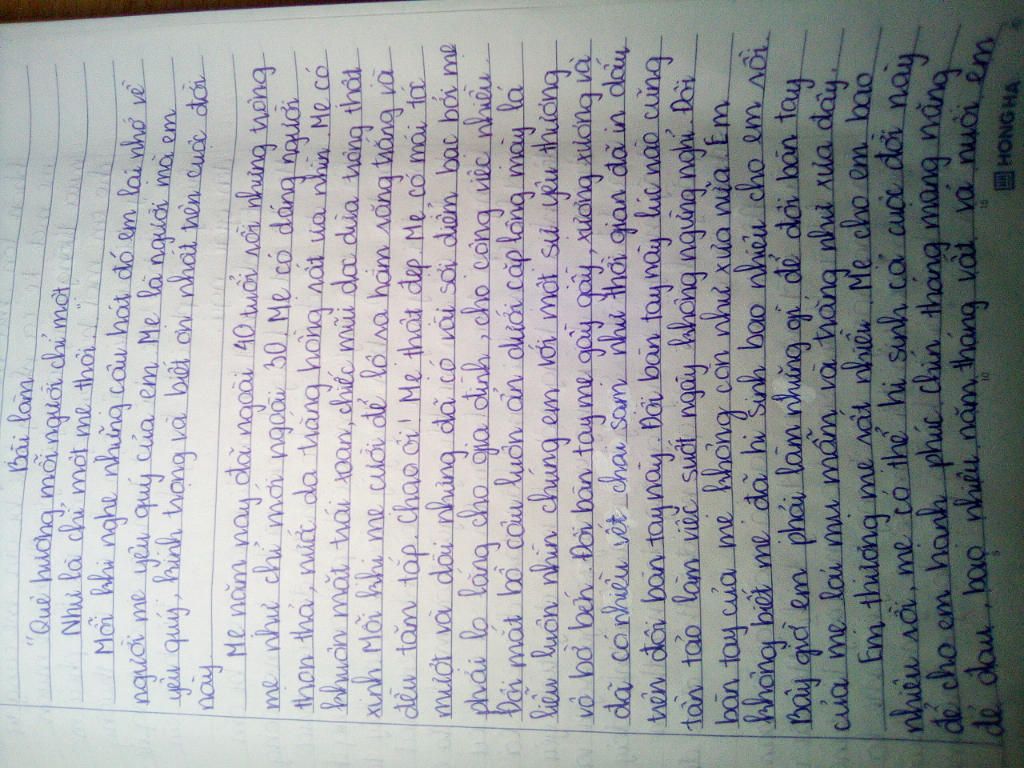 Bài làm
"Quê hương mỗi người chỉ một
Như là chỉ một mẹ thôi,"
Mỗi khi nghe những câu hát đó em lại nhớ về
người mẹ yêu quý của em. Mẹ là người mà em
yêu quý, kính trọng và biết ơn nhất trên cuộc đời
này
Mẹ năm nay đã ngoài 40 tuổi rồi nhưng trông
mẹ như chỉ mới ngoài 30. Mẹ có dáng người
thon thả, nước da trắng hồng rất ưa nhìn. Mẹ có
khuôn mặt trái xoan, chiếc mũi dọc dừa trông thật
xinh. Mỗi khi mẹ cười để lộ ra hàm răng trắng và
đều tăm tắp. Chao ôi! Mẹ thật đẹp. Mẹ có mái tóc
mượt và dài nhưng đã có vài sợi điểm bạc bởi mẹ
phải lo lắng cho gia đình, cho công việc nhiều.
Đôi mắt bồ câu luôn ẩn dưới cặp lông mày lá
liễu luôn nhìn chúng em với một sự yêu thương
vô bờ bến. Đôi bàn tay mẹ gầy gầy, xương xương và
đã có nhiều vết chai sạm như thời gian đã in dấu
trên đôi bàn tay này. Đôi bàn tay này lúc nào cũng
tần tảo làm việc suốt ngày không ngừng nghỉ. Đôi
bàn tay của mẹ không còn như xưa nữa. Em
không biết mẹ đã hi sinh bao nhiêu cho em rồi
Bây giờ em phải làm những gì để đôi bàn tay
của mẹ lại mịn mẫm và trắng như xưa đây.
Em thương mẹ rất nhiều. Mẹ cho em bao
nhiêu rồi, mẹ có thể hi sinh cả cuộc đời này
để cho em hạnh phúc. Chín tháng mang nặng
đẻ đau, bao nhiêu năm tháng vất vả nuôi em
HONG HA
5
10
15